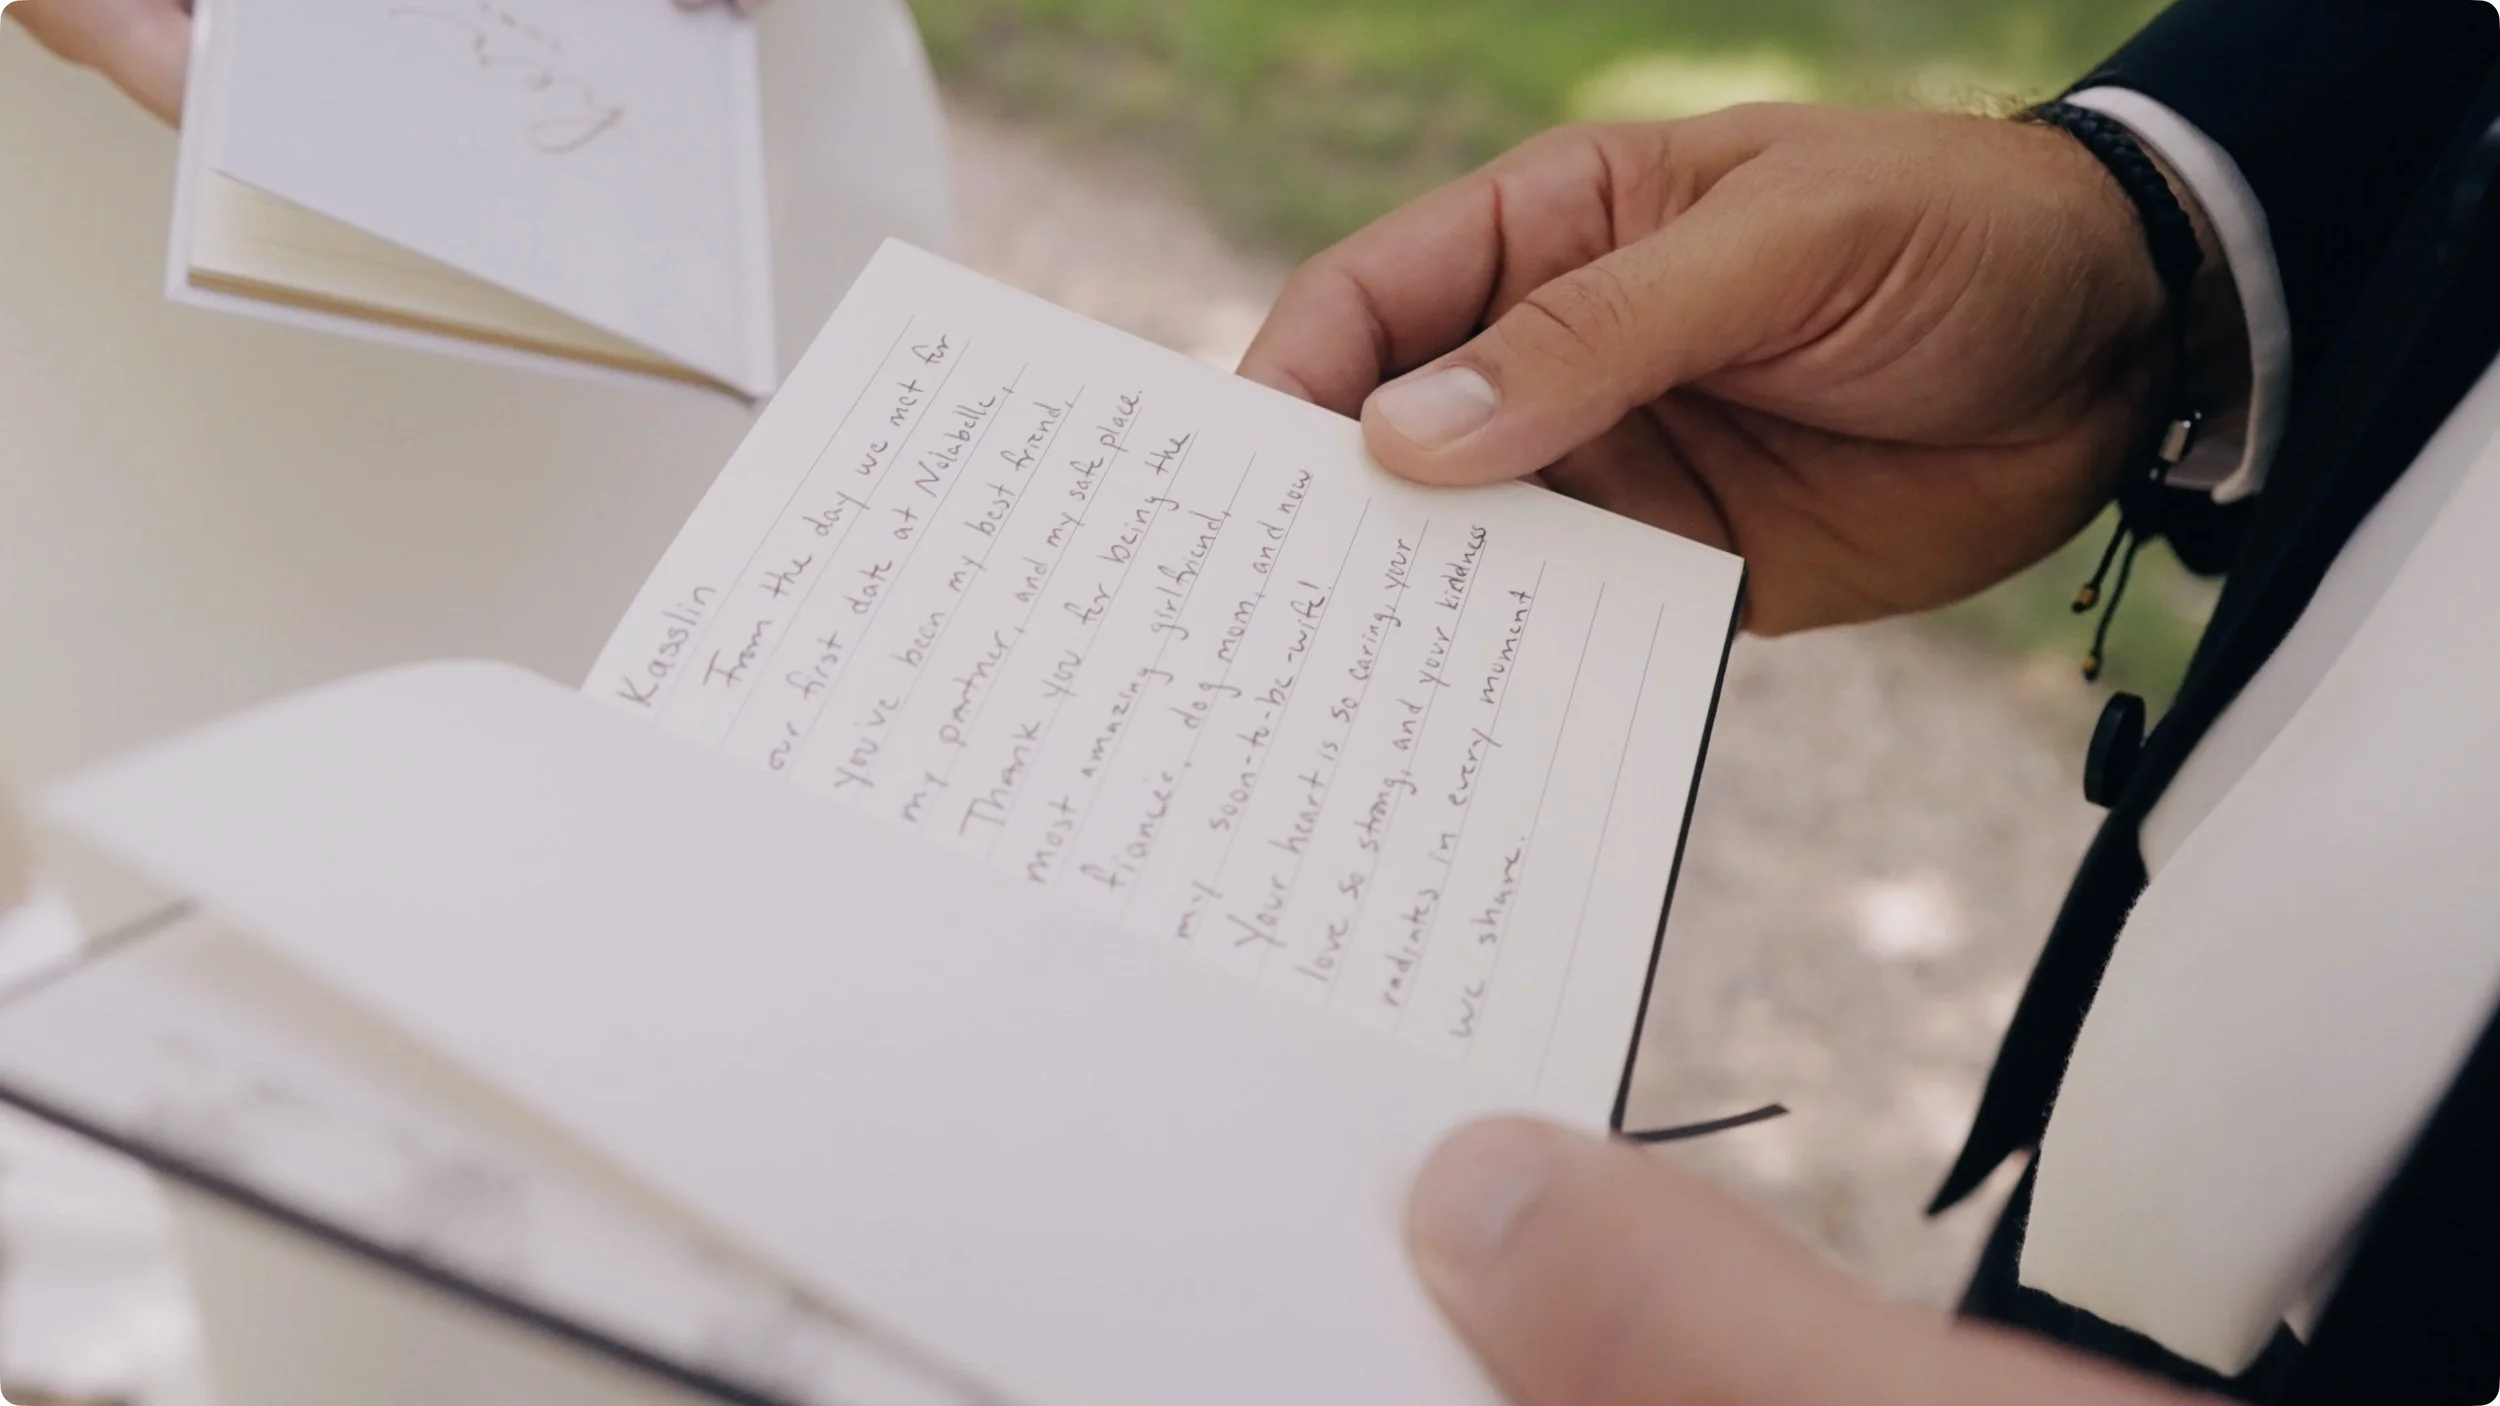 Kasslin
From the day we met for
our first date at Nolabelle,
you've been my best friend,
my partner, and my safe place.
Thank you for being the
most amazing girlfriend,
fiancée, dog mom, and now
my soon-to-be-wife!
Your heart is so caring, your
love so strong, and your kiddness
radiates in every moment
we share.